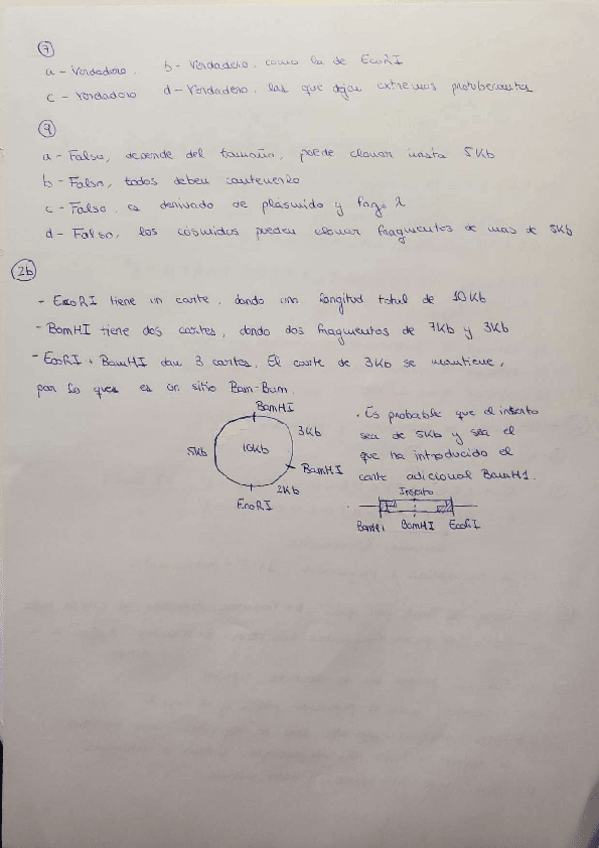 7
a - Verdadero. b - Verdadero, como la de EcoRI
c - Verdadero d - Verdadero, las que dejan extremos protuberantes
9
a - Falso, depende del tamaño, puede clonar hasta 5Kb
b - Falso, todos deben contenerlo
c - Falso. es derivado de plásmido y fago λ
d - Falso, los cósmidos pueden clonar fragmentos de mas de 5Kb
2b
- EcoRI tiene un corte, dando una longitud total de 10Kb
- BamHI tiene dos cortes, dando dos fragmentos de 7Kb y 3Kb
- EcoRI + BamHI dan 3 cortes. El corte de 3Kb se mantiene,
por lo que es un sitio Bam-Bam.
BamHI
3Kb
5Kb
10Kb
BamHI
2Kb
EcoRI
· Es probable que el inserto
sea de 5Kb y sea el
que ha introducido el
corte adicional BamH1.
Inserto
BamHI BamHI EcoRI